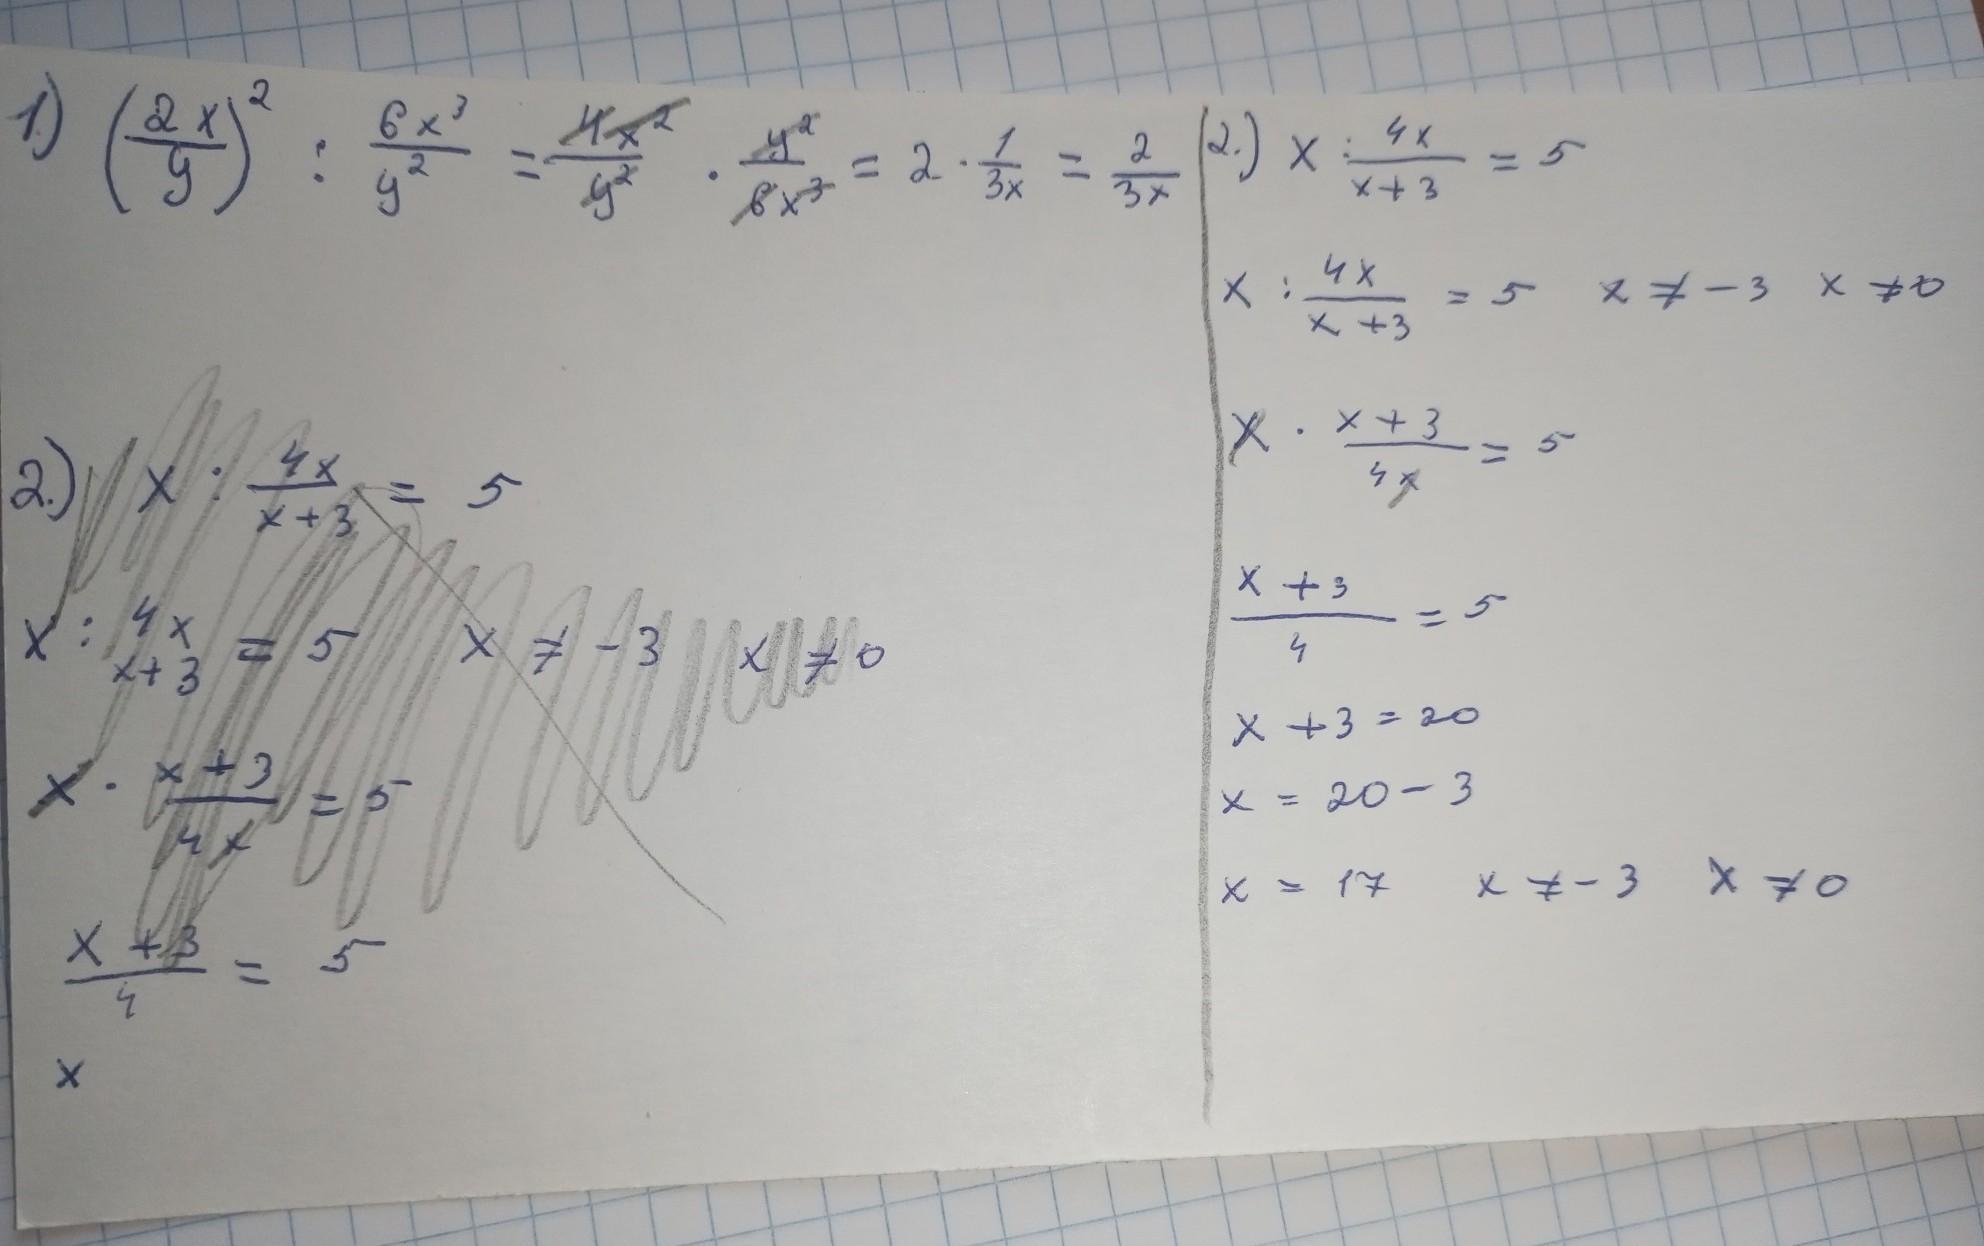 1.) (2x/y)² : 6x³/y² = 4x²/y² · y²/6x³ = 2 · 1/3x = 2/3x
2.) x : 4x/x+3 = 5
x : 4x/x+3 = 5 x ≠ -3 x ≠ 0
x · x+3/4x = 5
x+3/4 = 5
x
2.) x : 4x/x+3 = 5
x : 4x/x+3 = 5 x ≠ -3 x ≠ 0
x · x+3/4x = 5
x+3/4 = 5
x + 3 = 20
x = 20 - 3
x = 17 x ≠ -3 x ≠ 0